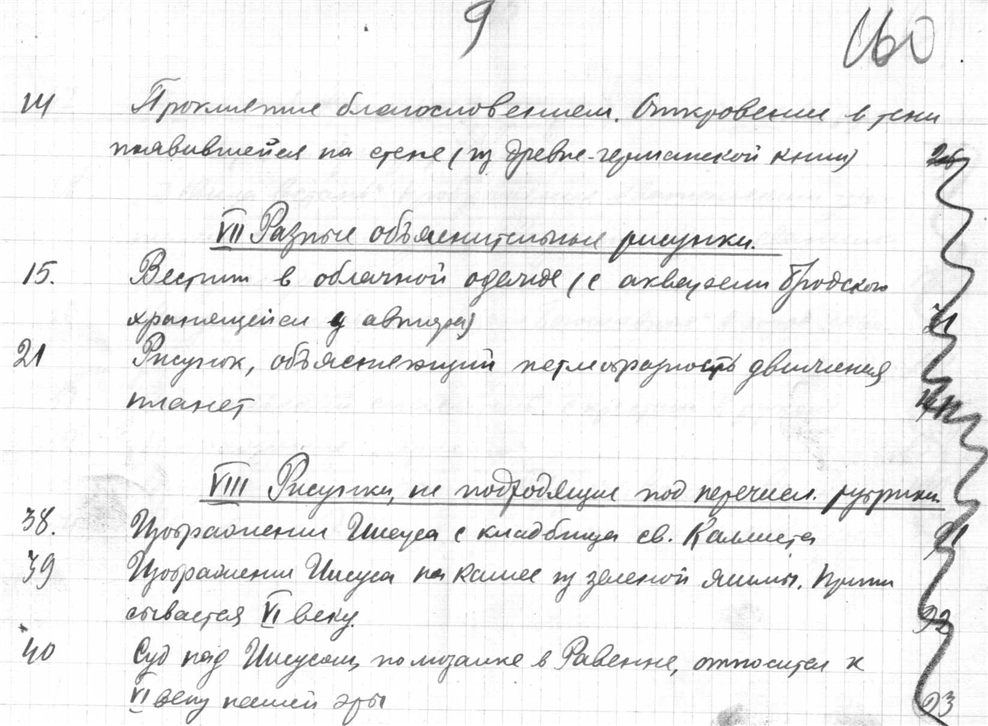 9
160
14 Проклятие благословением. Откровение в тени
появившейся на стене (из древне-германской книги) 26
VII Разные объяснительные рисунки.
15. Вестник в облачной одежде (с акварели Бродского
хранящейся у автора) 71
21 Рисунок, объясняющий петлеобразность движения
планет
VIII Рисунки, не подходящие под перечисл. рубрики.
38. Изображение Иисуса с кладбища св. Каллиста 91
39 Изображение Иисуса на камее из зеленой яшмы. Припи
сывается VI веку. 92
40 Суд над Иисусом, по мозаике в Равенне, относится к
VI веку нашей эры 93